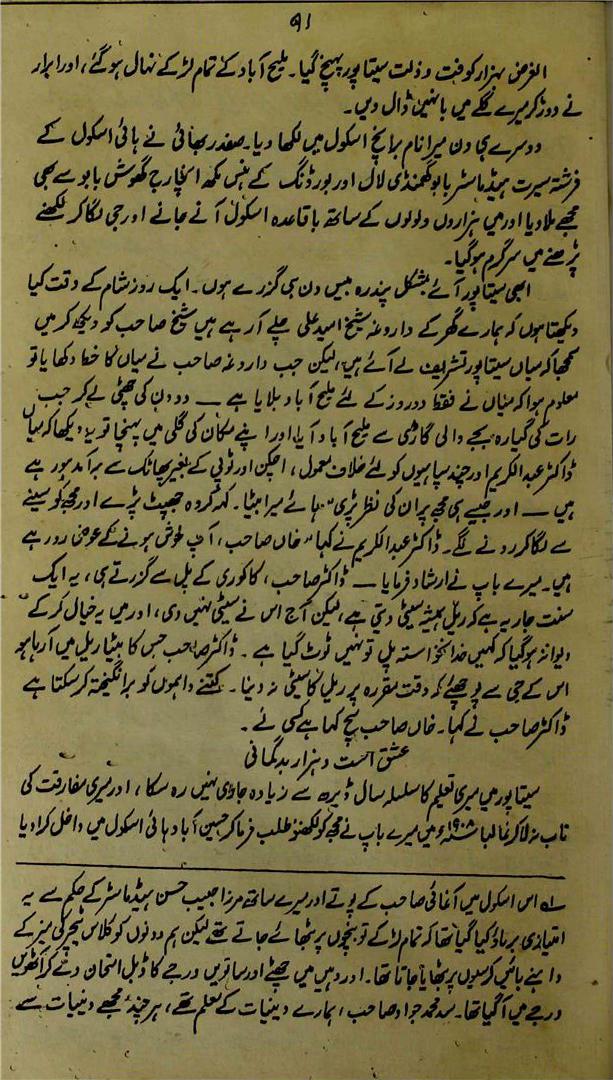 ۹۱
الغرض بہزار کوفت و ذلت سیتاپور پہنچ گیا۔ ملیح آباد کے تمام لڑکے نہال ہو گئے، اور ابرار
نے دوڑ کر میرے گلے میں بانہیں ڈال دیں۔
دوسرے ہی دن میرا نام برانچ اسکول میں لکھا دیا۔ صفدر بھائی نے ہائی اسکول کے
فرشتہ سیرت ہیڈ ماسٹر بابو گھمنڈی لال اور بورڈنگ کے ہنس مکھ انچارج گھوش بابو سے بھی
مجھے ملا دیا اور میں ہزاروں ولولوں کے ساتھ باقاعدہ اسکول آنے جانے اور جی لگا کر لکھنے
پڑھنے میں سرگرم ہو گیا۔
ابھی سیتاپور آئے بمشکل پندرہ بیس دن ہی گزرے ہوں۔ ایک روز شام کے وقت کیا
دیکھتا ہوں کہ ہمارے گھر کے داروغہ شیخ امید علی چلے آ رہے ہیں شیخ صاحب کو دیکھ کر میں
سمجھا کہ میاں سیتاپور تشریف لے آئے ہیں، لیکن جب داروغہ صاحب نے میاں کا خط دکھایا تو
معلوم ہوا کہ میاں نے فقط دو روز کے لئے ملیح آباد بلایا ہے — دو دن کی چھٹی لے کر جب
رات کی گیارہ بجے والی گاڑی سے ملیح آباد آیا، اور اپنے مکان کی گلی میں پہنچا تو یہ دیکھا کہ میاں
ڈاکٹر عبدالکریم اور چند سپاہیوں کو لئے خلاف معمول، اچکن اور ٹوپی کے بغیر پھاٹک سے برآمد ہو رہے
ہیں — اور جیسے ہی مجھ پر ان کی نظر پڑی "ہائے میرا بیٹا۔ کہہ کر وہ جھپٹ پڑے اور مجھ کو سینے
سے لگا کر رونے لگے۔ ڈاکٹر عبدالکریم نے کہا "خاں صاحب، آپ خوش ہونے کے عوض رو رہے
ہیں۔ میرے باپ نے ارشاد فرمایا — ڈاکٹر صاحب، کاکوری کے پل سے گزرتے ہی، یہ ایک
سنت جاریہ ہے کہ ریل ہمیشہ سیٹی دیتی ہے، لیکن آج اس نے سیٹی نہیں دی، اور میں یہ خیال کر کے
دیوانہ ہو گیا کہ کہیں خدانخواستہ پل تو نہیں ٹوٹ گیا ہے۔ ڈاکٹر صاحب جس کا بیٹا ریل میں آ رہا ہو
اس کے جی سے پوچھئے کہ وقت مقررہ پر ریل کا سیٹی نہ دینا۔ کتنے واہموں کو برانگیختہ کر سکتا ہے
ڈاکٹر صاحب نے کہا۔ خاں صاحب سچ کہا ہے کسی نے۔
عشق است و ہزار بدگمانی
سیتاپور میں میری تعلیم کا سلسلہ سال ڈیڑھ سے زیادہ جاری نہیں رہ سکا، اور میری مفارقت کی
تاب نہ لا کر غالباً ۱۹۰۸ء میں میرے باپ نے مجھ کو لکھنؤ طلب فرما کر حسین آباد ہائی اسکول میں داخل کرا دیا
لے اس اسکول میں آغائی صاحب کے پوتے اور میرے ساتھ مرزا حبیب حسن ہیڈ ماسٹر کے حکم سے یہ
امتیازی برتاؤ کیا گیا تھا کہ تمام لڑکے تو بنچوں پر بٹھائے جاتے تھے لیکن ہم دونوں کو کلاس ٹیچر کی میز کے
داہنے بائیں کرسیوں پر بٹھایا جاتا تھا۔ اور وہیں میں چھٹے اور ساتویں درجے کا ڈبل امتحان دے کر آٹھویں
درجے میں آ گیا تھا۔ سید محمد جواد صاحب، ہمارے دینیات کے معلم تھے، ہر چند مجھے دینیات سے